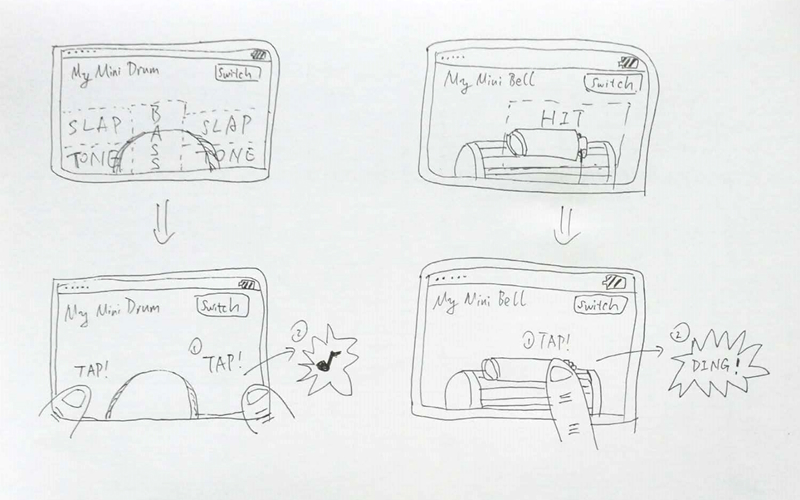 My Mini Drum
Switch
SLAP
BASS
SLAP
TONE
TONE
My Mini Bell
Switch
HIT
My Mini Drum
Switch
TAP!
① TAP!
②
My Mini Bell
Switch
① TAP!
②
DING!